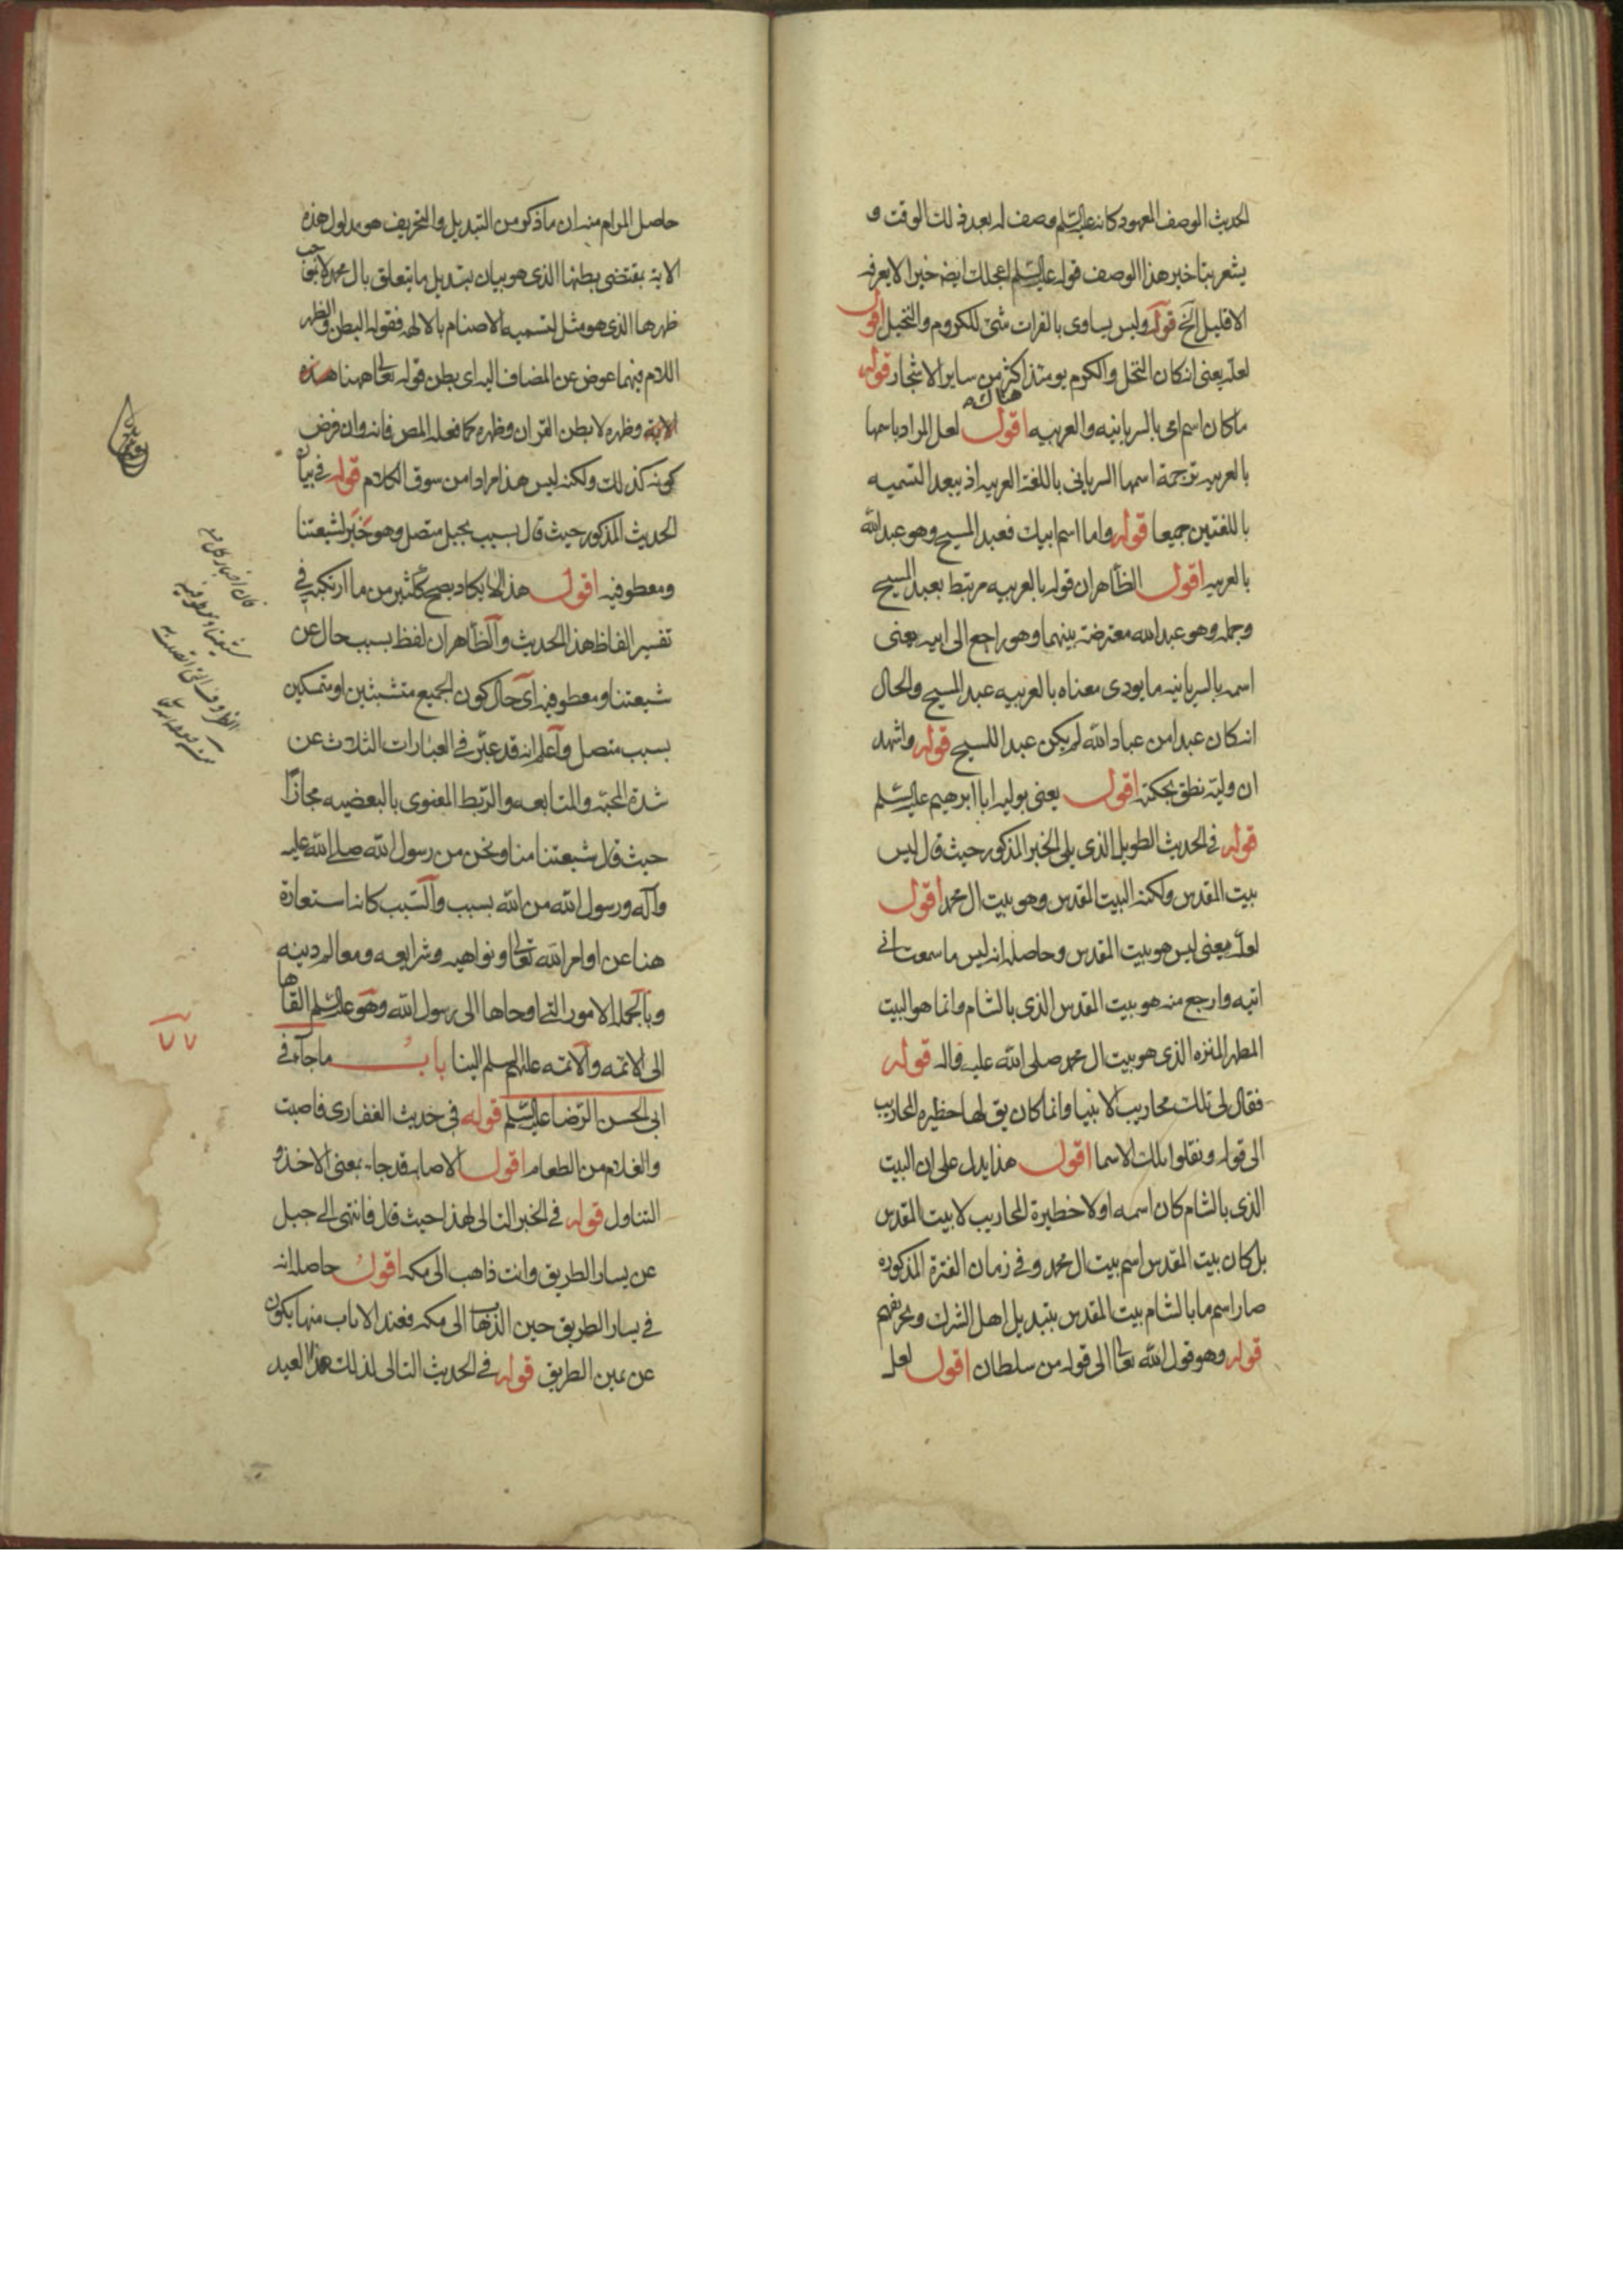 الحديث الوصف المعهود كانه عليه السلم وصف له بعد ذلك الوقت و
يشعر بتاخير هذا الوصف قوله عليه السلم اعجلك ايضا خيرا لا يعرفه
الا قليل الخ قوله وليس يساوى بالفرات شئ للكروم والنخيل اقول
لعله يعنى ان كان النخل والكرم يومئذ اكثر من ساير الاشجار قوله
هناك
ما كان اسم امى بالسريانيه والعربيه اقول لعل المراد باسمها
بالعربيه ترجمة اسمها السريانى باللغة العربيه اذ يبعد التسميه
باللغتين جميعا قوله واما اسم ابيك فعبد المسيح وهو عبد الله
بالعربيه اقول الظاهر ان قوله بالعربيه مرتبط بعبد المسيح
وجمله وهو عبد الله معترضة بينهما وهو راجع الى ابيه يعنى
اسمه بالسريانيه ما يودى معناه بالعربيه عبد المسيح والحال
انه كان عبدا من عباد الله لم يكن عبدا للمسيح قوله واشهد
ان وليه نطق بحكمته اقول يعنى بوليه ابا ابرهيم عليه السلم
قوله فى الحديث الطويل الذى يلى الخبر المذكور حيث قال ليس
بيت المقدس ولكنه البيت المقدس وهو بيت ال محمد اقول
لعله يعنى ليس هو بيت المقدس وحاصله انه ليس ما سمعت انى
اتيه وارجع منه هو بيت المقدس الذى بالشام وانما هو البيت
المطهر المنزه الذى هو بيت ال محمد صلى الله عليه واله قوله
فقال لى تلك محاريب الانبيا وانما كان يق لها حظيره المحاريب
الى قوله ونقلوا تلك الاسما اقول هذا يدل على ان البيت
الذى بالشام كان اسمه اولا خطيرة المحاريب لا بيت المقدس
بل كان بيت المقدس اسم بيت ال محمد وفى زمان الفترة المذكوره
صار اسم ما بالشام بيت المقدس بتبديل اهل الشرك وتحريفهم
قوله وهو قول الله تعالى الى قوله من سلطان اقول لعل
حاصل المرام منه ان ما ذكر من التبديل والتحريف هو مدلول هذه
الاية بمقتضى بطنها الذى هو بيان تبديل ما يتعلق بال محمد لا بموجب
ظهرها الذى هو مثل لتسميه الاصنام بالالهه فقوله البطن والظهر
اللام فيهما عوض عن المضاف اليه اى بطن قوله تعالى ههنا هذه
الاية وظهره لا بطن القران وظهره كما فعله المص فانه وان فرض
كونه كذلك ولكنه ليس هذا مرادا من سوق الكلام قوله فى بيان
الحديث المذكور حيث قال بسبب بحبل متصل وهو خبر لشيعتنا
ومعطوفيه اقول هذا لا يكاد يصح ككثير من ما ارتكبه فى
تفسير الفاظ هذا الحديث والظاهر ان لفظ بسبب حال عن
شيعتنا ومعطوفيه اى حال كون الجميع متشبثين او متمسكين
بسبب متصل واعلم انه قد عبر فى العبارات الثلاث عن
شدة المحبة والمتابعه والربط المعنوى بالبعضيه مجازا
حيث قال شيعتنا منا ونحن من رسول الله صلى الله عليه
وآله ورسول الله من الله بسبب والسبب كانه استعارة
هنا عن اوامر الله تعالى ونواهيه وشرايعه ومعالم دينه
وبالجمله الامور التى اوحاها الى رسول الله وهو عليه السلم القاها
الى الائمه والائمه عليهم السلم الينا باب ما جآء فى
ابى الحسن الرضا عليه السلم قوله فى حديث الغفارى فاصبت
والغلام من الطعام اقول الاصابه قد جاء بمعنى الاخذ و
التناول قوله فى الخبر التالى لهذا حيث قال فانتهى الى جبل
عن يسار الطريق وانت ذاهب الى مكه اقول حاصله انه
فى يسار الطريق حين الذهاب الى مكه فعند الاياب منها يكون
عن يمين الطريق قوله فى الحديث التالى لذلك هذا العيد
٧٧